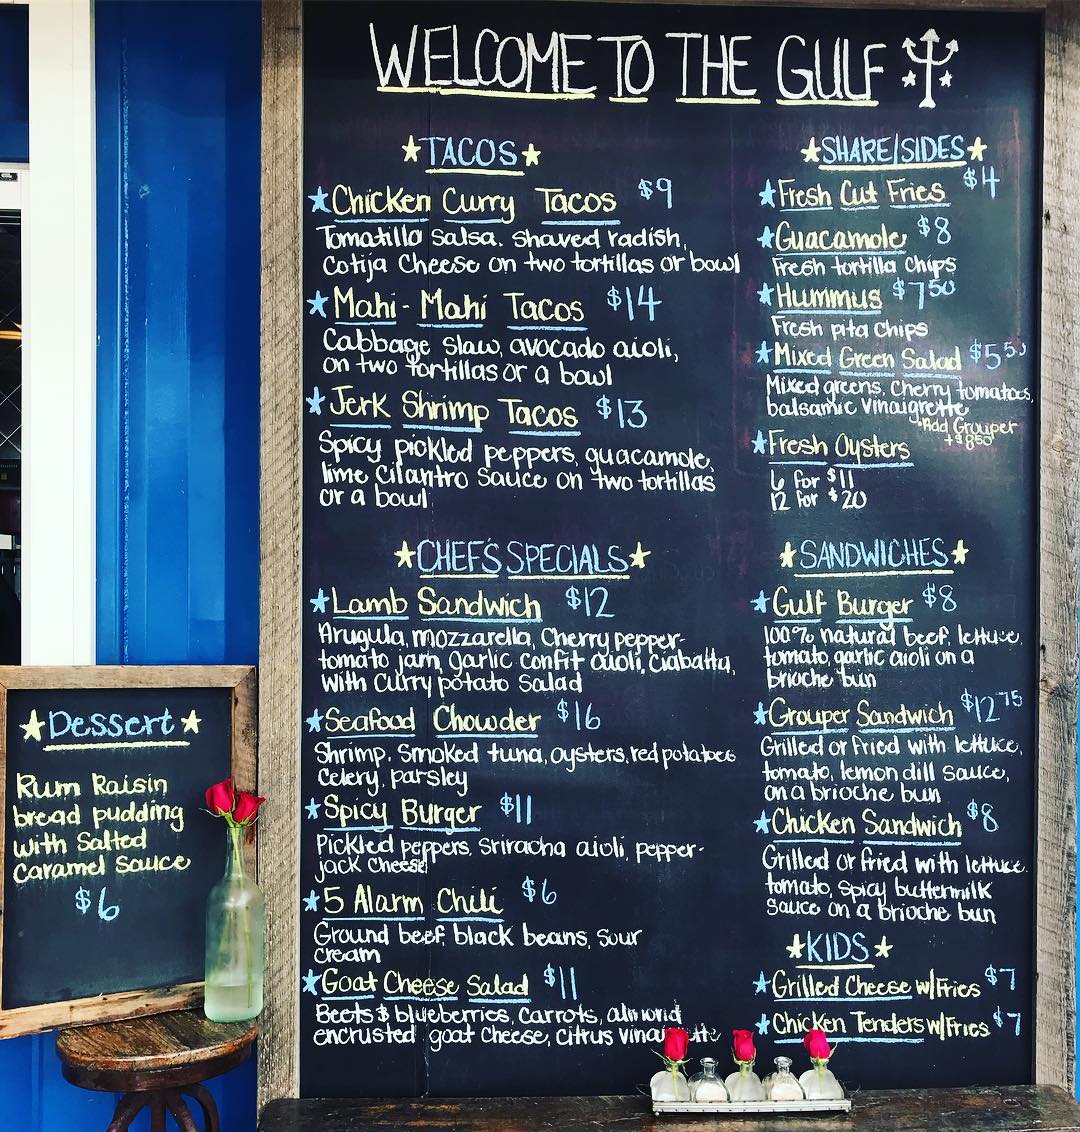 WELCOME TO THE GULF
TACOS
Chicken Curry Tacos $9
Tomatillo salsa, shaved radish,
Cotija Cheese on two tortillas or bowl
Mahi-Mahi Tacos $14
Cabbage slaw, avocado aioli,
on two tortillas or a bowl
Jerk Shrimp Tacos $13
Spicy pickled peppers, guacamole,
lime Cilantro Sauce on two tortillas
or a bowl
CHEF'S SPECIALS
Lamb Sandwich $12
Arugula, mozzarella, Cherry pepper-
tomato jam, garlic confit aioli, Ciabatta,
with Curry potato Salad
Seafood Chowder $16
Shrimp, Smoked tuna, oysters, red potatoes
Celery, parsley
Spicy Burger $11
Pickled peppers, Sriracha aioli, pepper-
jack Cheese
5 Alarm Chili $6
Ground beef, black beans, Sour
cream
Goat Cheese Salad $11
Beets & blueberries, Carrots, almond
encrusted goat Cheese, Citrus
SHARE/SIDES
Fresh Cut Fries $4
Guacamole $8
Fresh tortilla Chips
Hummus $7.50
Fresh pita Chips
Mixed Green Salad $5.50
Mixed greens, Cherry tomatoes,
balsamic Vinaigrette
*Add Grouper
+$8.50
Fresh Oysters
6 for $11
12 for $20
SANDWICHES
Gulf Burger $8
100% natural beef, lettuce,
tomato, garlic aioli on a
brioche bun
Grouper Sandwich $12.75
Grilled or Fried with lettuce,
tomato, lemon dill Sauce,
on a brioche bun
Chicken Sandwich $8
Grilled or fried with lettuce,
tomato, Spicy buttermilk
Sauce on a brioche bun
KIDS
Grilled Cheese w/Fries $7
Chicken Tenders w/Fries $7
Dessert
Rum Raisin
bread pudding
with Salted
Caramel Sauce
$6